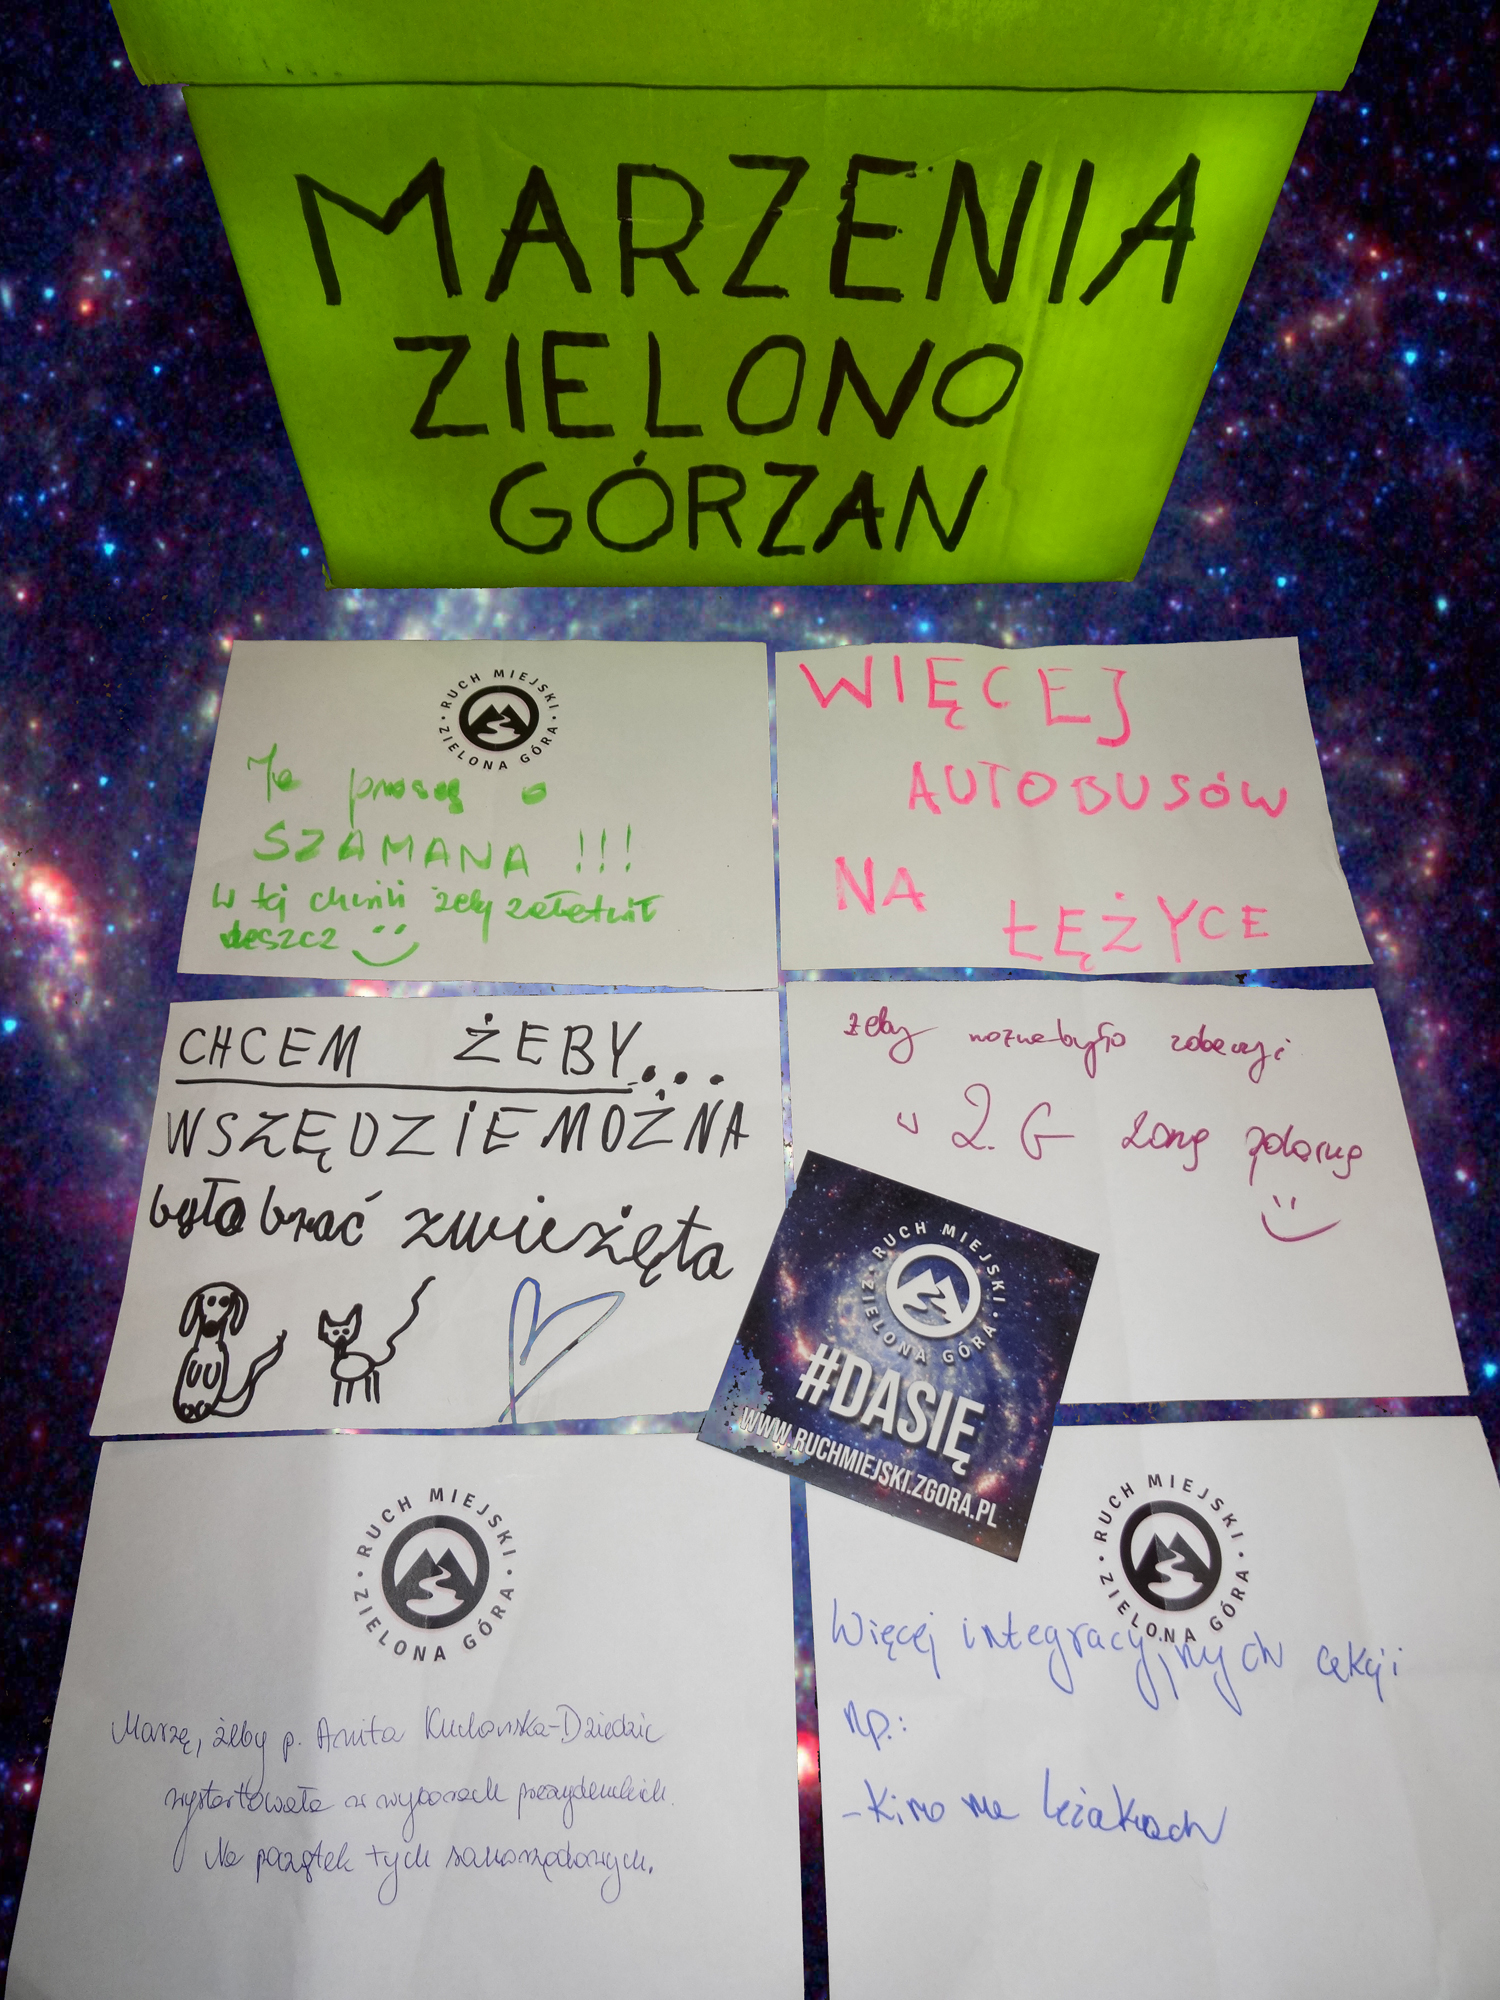 MARZENIA
ZIELONO
GÓRZAN
RUCH MIEJSKI
ZIELONA GÓRA
Ja proszę o
SZAMANA !!!
W tej chwili żeby załatwił
deszcz
WIĘCEJ
AUTOBUSÓW
NA ŁĘŻYCE
CHCEM ŻEBY...
WSZĘDZIE MOŻNA
było brać zwieżęta
żeby można było zobaczyć
w Z. G zorzę polarną
RUCH MIEJSKI
ZIELONA GÓRA
#DASIĘ
WWW.RUCHMIEJSKI.ZGORA.PL
RUCH MIEJSKI
ZIELONA GÓRA
Marzę, żeby p. Anita Kucharska-Dziedzic
wystartowała w wyborach prezydenckich.
Na początek tych samorządowych.
RUCH MIEJSKI
ZIELONA GÓRA
Więcej integracyjnych akcji
np.:
- Kino na leżakach